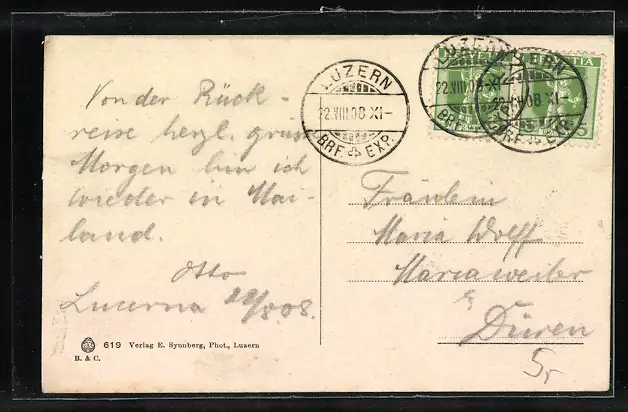 Von der Rück-
reise herzl. grüsse
Morgen bin ich
wieder in Mai-
land.
Otto
Lucerna 22/8 08.
LUZERN
22.VIII.08-XI-
BRF. EXP.
LUZERN
22.VIII.08-XI-
BRF. EXP.
HELVETIA
5
Fräulein
Maria Wolff
Mariaweiler
Düren
619 Verlag E. Synnberg, Phot., Luzern
B. & C.